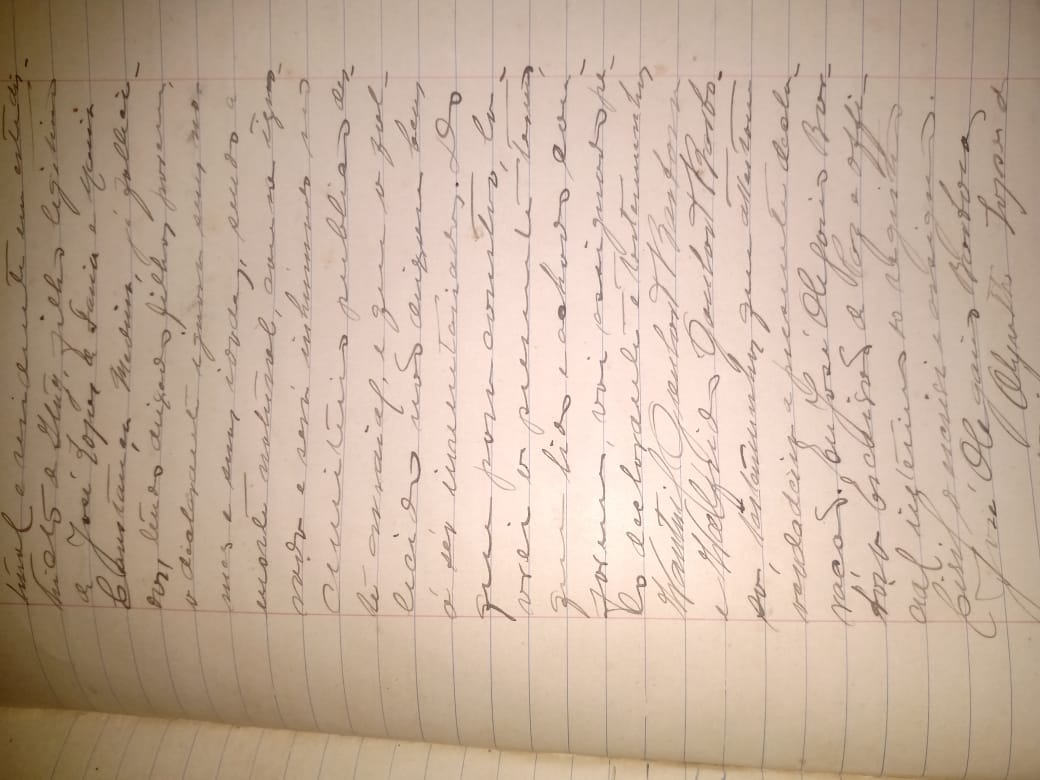 tural e residente em este dis-
tricto de Gluy, filho legitimo
de José Lopes de Faria e Maria
Constança Medina, já fallici-
dos, tendo deixado filhos porem,
o declarante ignora seus no-
mes e suas idades, sendo a
morte natural, causa igno-
rada e será inhumado no
cimiterio publico des-
te arraial, e que o fal-
lecido não deixou bens
á ser inventariados. Do
que para constar, la-
vrei o presente termo,
que lido e achado con-
forme, vai assignado pe-
lo declarante e testemunhas
Wantuil Goulart Barbosa
e Walfrido Goulart Barbo-
sa, testemunhas que attestam
verdadeira a presente decla-
ração. Eu José Olegario Bar-
bósa Escrivão de Paz e offi-
cial interino do registro
Civil o escrevi e assigno.
José Olegario Barbosa
Lopes d